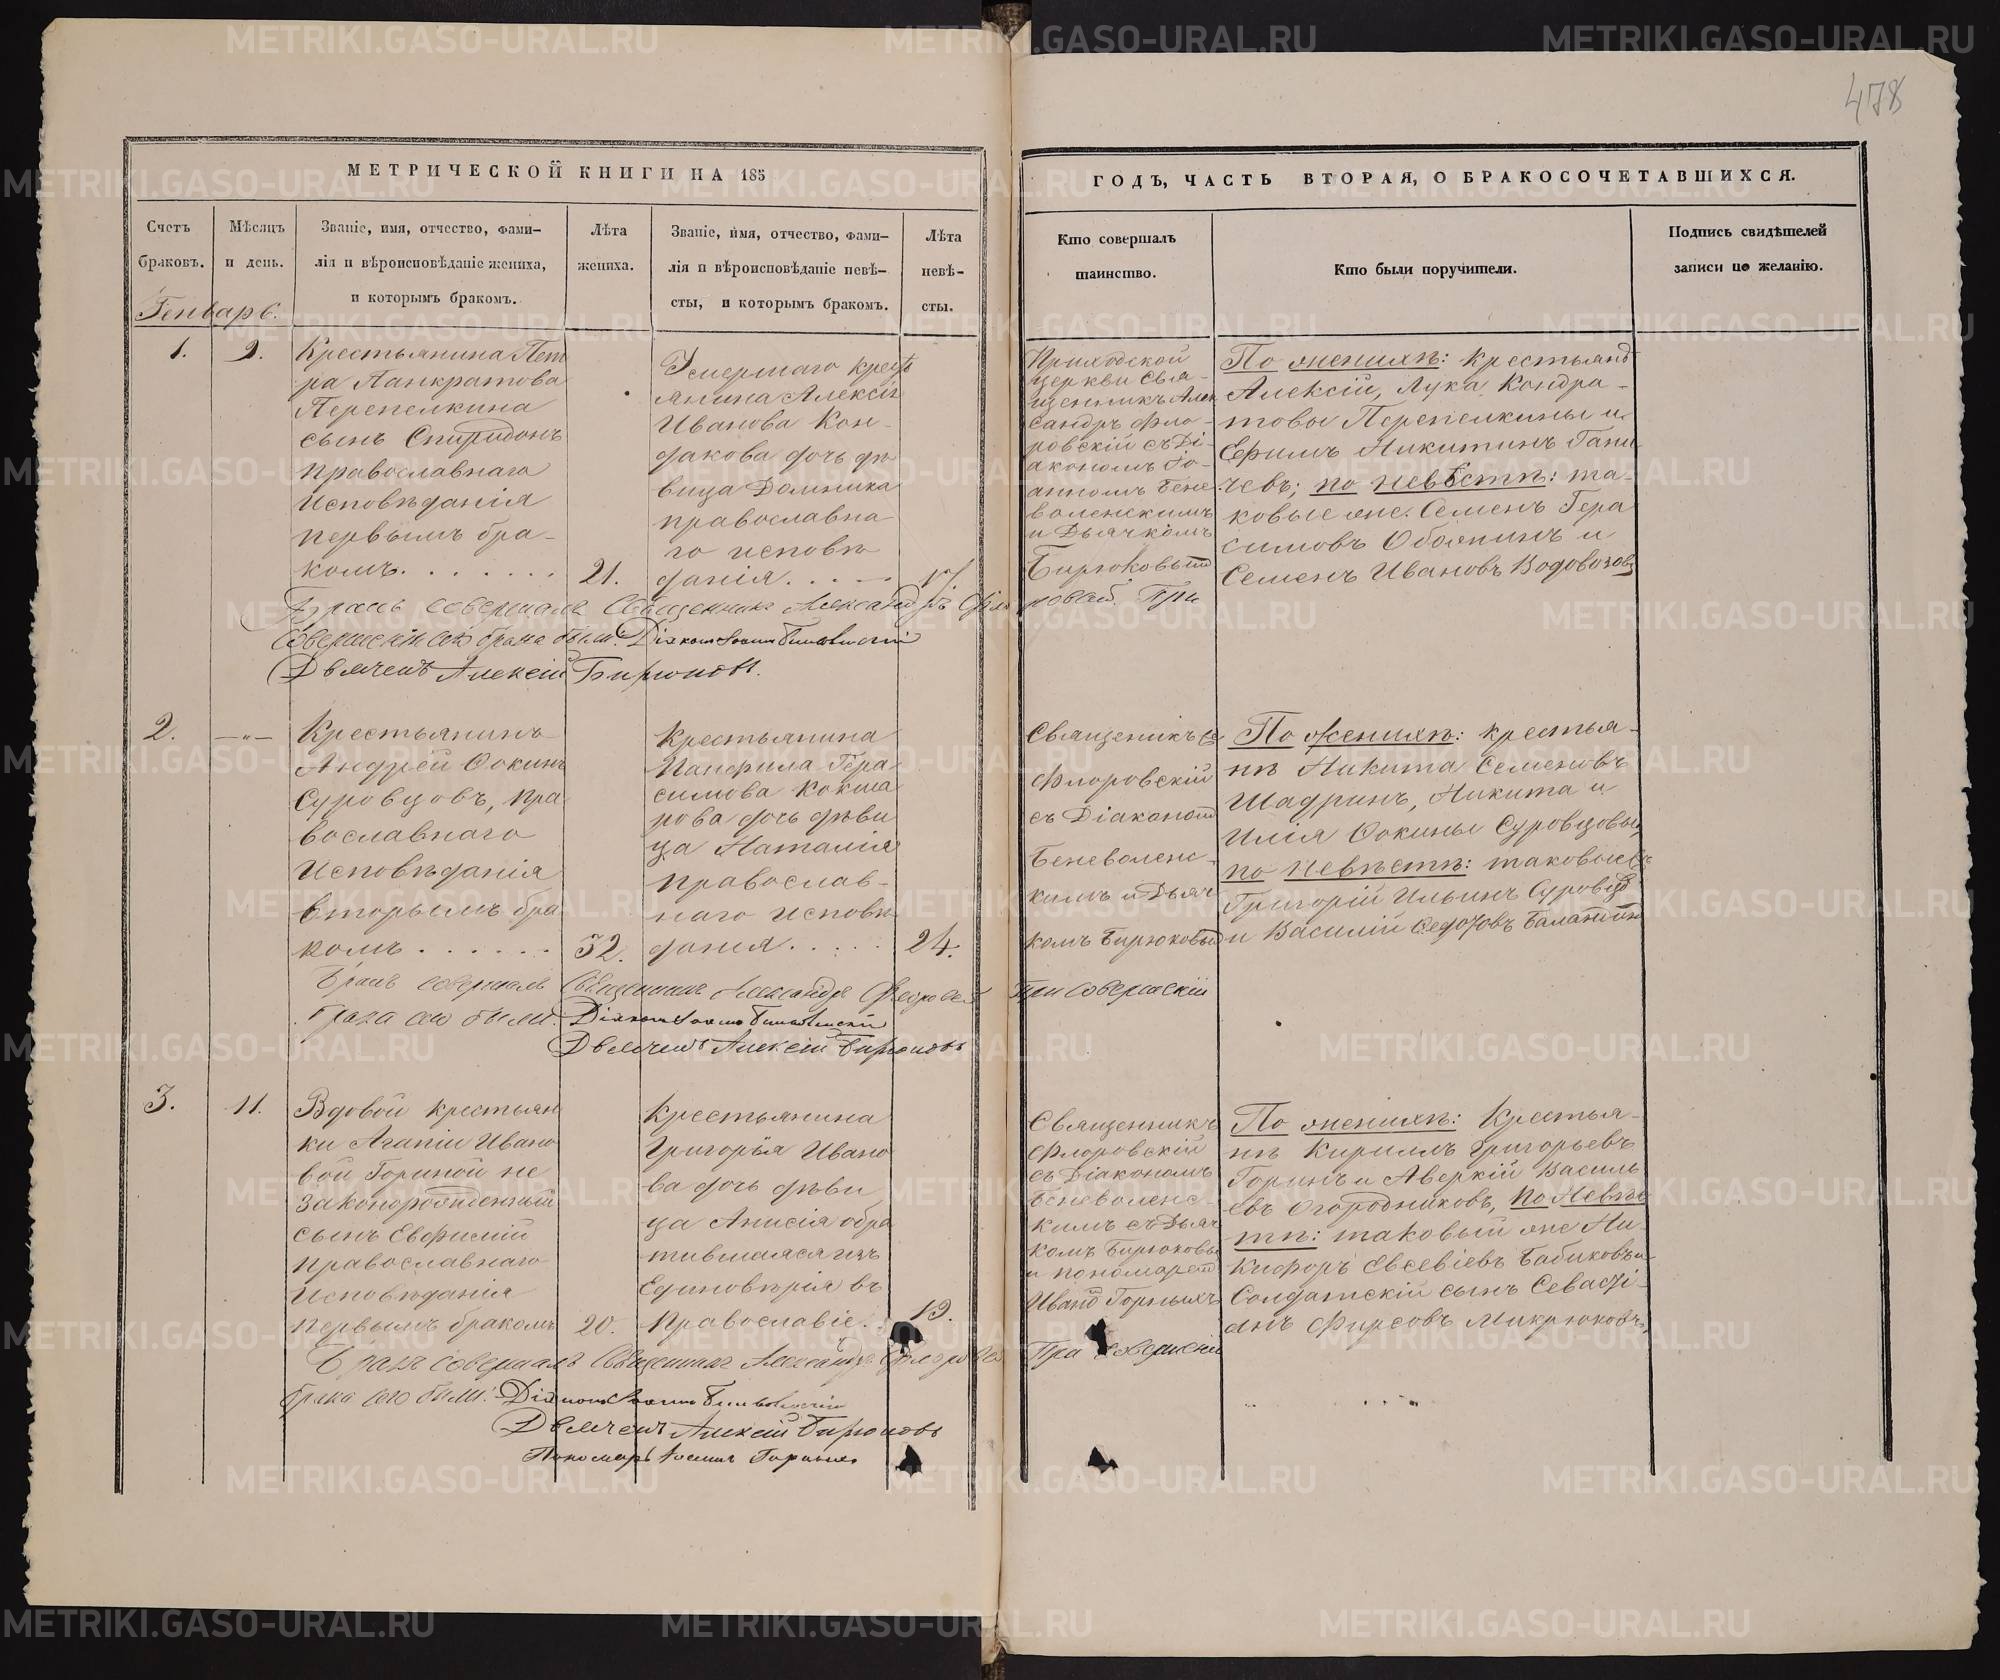 478
МЕТРИЧЕСКОЙ КНИГИ НА 185
Счетъ браковъ.
Мѣсяцъ и день.
Званіе, имя, отчество, фами-
лія и вѣроисповѣданіе жениха,
и которымъ бракомъ.
Лѣта жениха.
Званіе, имя, отчество, фами-
лія и вѣроисповѣданіе невѣ-
сты, и которымъ бракомъ.
Лѣта невѣ-
сты.
ГОДЪ, ЧАСТЬ ВТОРАЯ, О БРАКОСОЧЕТАВШИХСЯ.
Кто совершалъ
таинство.
Кто были поручители.
Подпись свидѣтелей
записи по желанію.
Генварь.
1.
9.
Крестьянина Пет
ра Панкратова
Перепелкина
сынъ Спиридонъ
православнаго
Исповѣданія
первымъ бра-
комъ.
21.
Умершаго крест
янина Алексѣя
Иванова Кон-
дакова дочь дѣ
вица Домника
православна
го исповѣ
данія
17.
Приходской
церкви Свя-
щенникъ Алек
сандръ Фло-
ровскій съ Ді-
акономъ Іо-
анномъ Бене
воленскимъ
и Дьячкомъ
Бирюковым
По женихѣ: крестьяне
Алексій, Лука Кондра-
товы Перепелкины и
Ефимъ Никитинъ Гани
чевъ; по невѣстѣ: та-
ковые же. Семенъ Гера
симовъ Оболнинъ и
Семенъ Ивановъ Водовозов
Бракъ совершалъ Священникъ Александръ Флоровскій. При
совершеніи сего брака были: Діаконъ Іоаннъ Беневоленскій
Дьячекъ Алексій Бирюковъ.
2.
—„—
Крестьянинъ
Андрей Фокинъ
Суровцовъ, пра
вославнаго
Исповѣданія
вторымъ бра
комъ
32.
Крестьянина
Панфила Гера
симова Кокша
рова дочь дѣви
ца Наталія
Православ-
наго исповѣ
данія
24.
Священникъ
Флоровскій
съ Діаконом
Беневоленс-
кимъ и Дьяч
комъ Бирюковым
По женихѣ: крестья-
нѣ Никита Семеновъ
Шадринъ, Никита и
Илія Фокины Суровцовы,
по невѣстѣ: таковые
Григорій Ильинъ Суровцов
и Василій Федотовъ Балакин
Бракъ совершалъ Священникъ Александръ Флоровскій При совершеніи
брака сего были: Діаконъ Іоаннъ Беневоленскій
Дьячекъ Алексій Бирюковъ
3.
11.
Вдовой крестьян
ки Агапіи Ивано
вой Гориной не
законорожденный
сынъ Евфимій
православнаго
Исповѣданія
первымъ бракомъ
20.
Крестьянина
Григорія Ивано
ва дочь дѣви
ца Анисія обра
тившаяся изъ
Единовѣрія въ
Православіе.
19.
Священникъ
Флоровскій
съ Діакономъ
Беневоленс-
кимъ съ Дьяч
комъ Бирюковы
и пономарем
Иван Горныхъ
По женихѣ: Крестья-
нѣ Кириллъ Григорьевъ
Горинъ и Аверкій Василь
евъ Огородниковъ, по Невѣс
тѣ: таковый же Ни-
кифоръ Евсевіевъ Бабиковъ и
Солдатскій сынъ Севасті-
анъ Фирсовъ Микрюковъ,
Бракъ совершалъ Священникъ Александръ Флоровскій При совершеніи
брака сего были: Діаконъ Іоаннъ Беневоленскій
Дьячекъ Алексій Бирюковъ
Пономарь Іоаннъ Горныхъ
METRIKI.GASO-URAL.RU